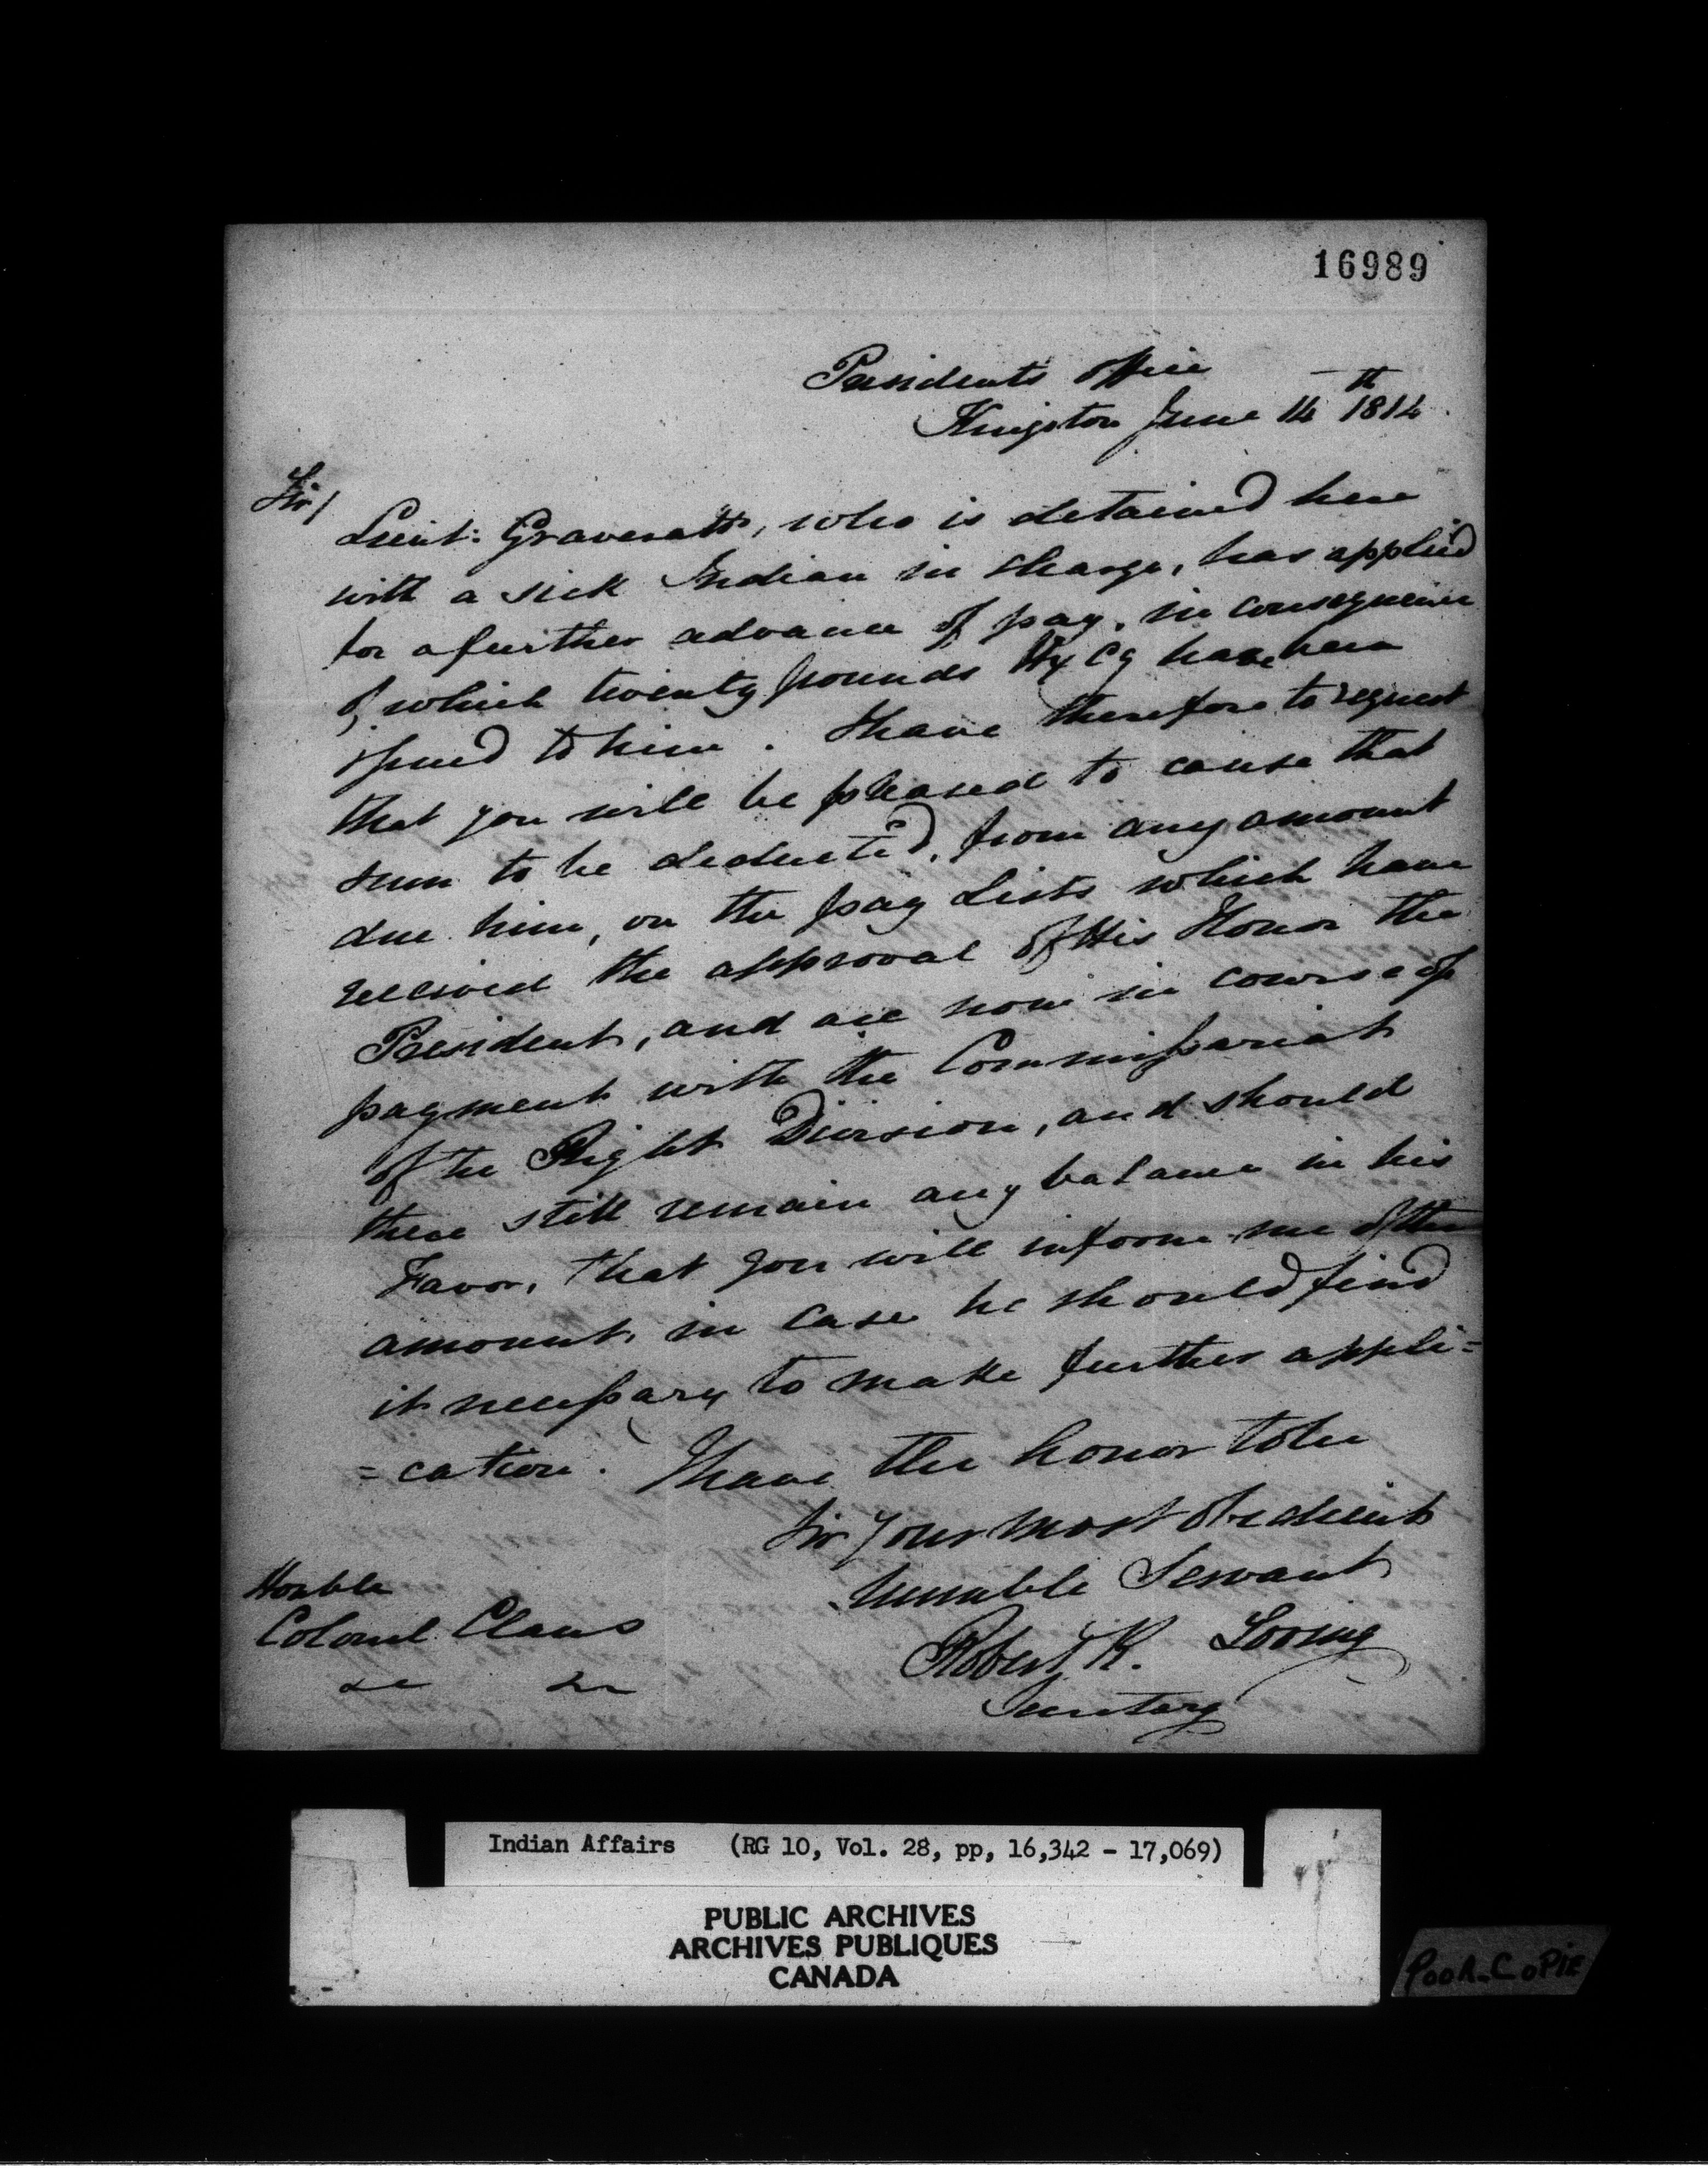 16989
Presidents office
Kingston June 14th 1814
Sir/
Lieut: Graveratt, who is detained here
with a sick Indian in charge, has applied
for a further advance of pay, in consequence
of which twenty pounds Hx Cy have been
issued to him. I have therefore to request
that you will be pleased to cause that
sum to be deducted, from any amount
due him, on the pay Lists which have
received the approval of His Honor the
President, and are now in course of
payment with the Commissariat
of the Right Division, and should
there still remain any balance in his
Favor, that you will inform me of the
amount, in case he should find
it necessary to make further appli=
=cation. I have the honor to be
Sir Your most obedient
humble Servant
Robert R. Loring
Secretary
Honble
Colonel Claus
&c &c
Indian Affairs (RG 10, Vol. 28, pp, 16,342 - 17,069)
PUBLIC ARCHIVES
ARCHIVES PUBLIQUES
CANADA
POOR-COPIE